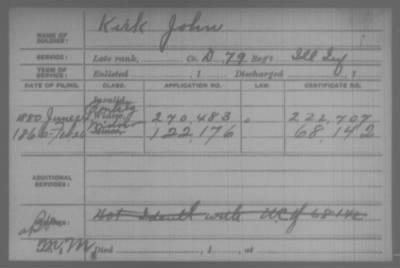 Kirk John
NAME OF SOLDIER:
SERVICE: Late rank, Co. D. 79 Reg't Ill Inf
TERM OF SERVICE: Enlisted , 1 Discharged , 1
DATE OF FILING. CLASS. APPLICATION NO. LAW. CERTIFICATE NO.
Invalid,
1880 June Widow, 270,483 222,707
186 Feb Minor, 122,176 68,142
ADDITIONAL SERVICES:
Not Ident with W.C. of 68142
Died , 1 , at